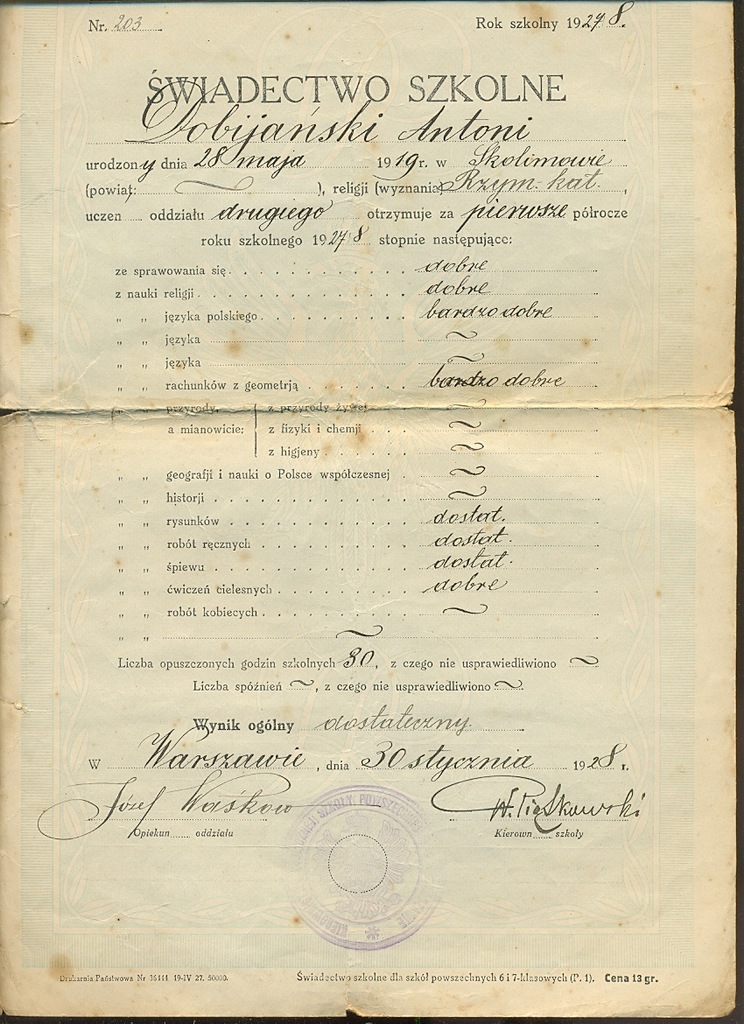 Nr. 203
Rok szkolny 1927/8.
ŚWIADECTWO SZKOLNE
Dobijański Antoni
urodzony dnia 28 maja 1919 r. w Skolimowie
(powiat: ), religji (wyznania) Rzym. kat.,
uczeń oddziału drugiego otrzymuje za pierwsze półrocze
roku szkolnego 1927/8 stopnie następujące:
ze sprawowania się dobre
z nauki religji dobre
" " języka polskiego bardzo dobre
" " języka ~
" " języka ~
" " rachunków z geometrją bardzo dobre
" " przyrody, z przyrody żywej ~
a mianowicie: z fizyki i chemji ~
z higjeny ~
" " geografji i nauki o Polsce współczesnej ~
" " historji ~
" " rysunków dostat.
" " robót ręcznych dostat.
" " śpiewu dostat.
" " ćwiczeń cielesnych dobre
" " robót kobiecych ~
" " ~
Liczba opuszczonych godzin szkolnych 30, z czego nie usprawiedliwiono ~
Liczba spóźnień ~, z czego nie usprawiedliwiono ~.
Wynik ogólny dostateczny
W Warszawie, dnia 30 stycznia 1928 r.
Józef
Opiekun oddziału
Kierown. szkoły
Drukarnia Państwowa Nr 36444 19-IV 27. 50000.
Świadectwo szkolne dla szkół powszechnych 6 i 7-klasowych (P. 1). Cena 13 gr.